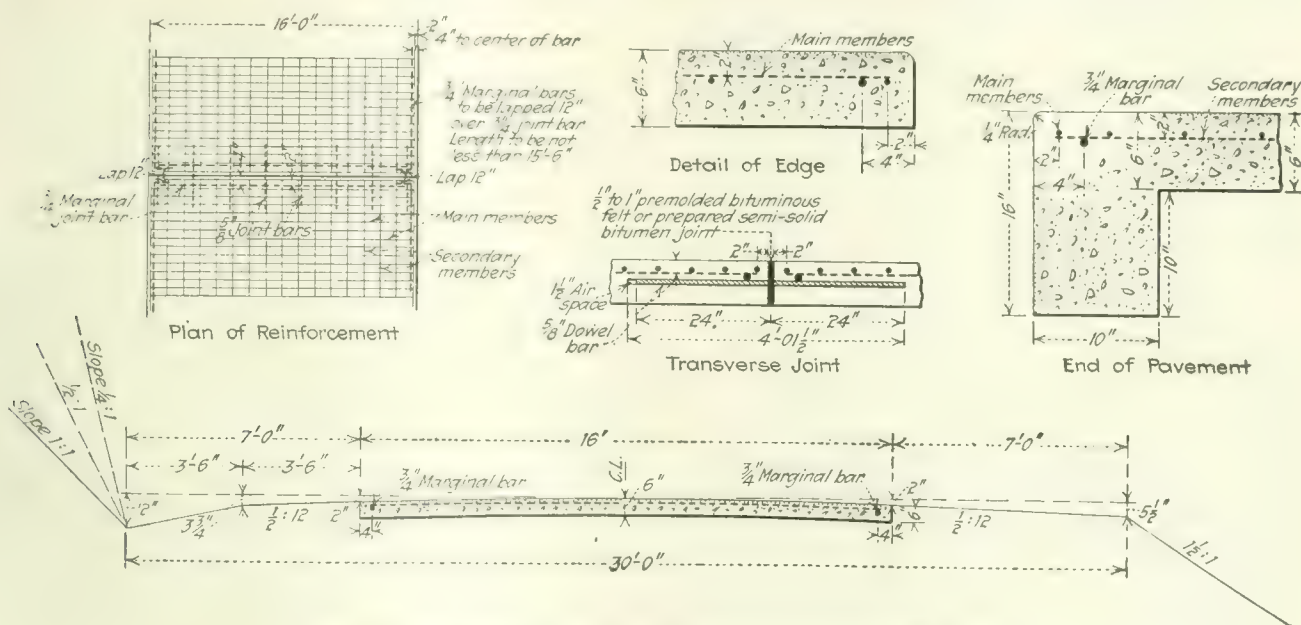 16'-0"
2"
4" to center of bar
3/4" Marginal bars
to be lapped 12"
over 3/4" joint bar
Length to be not
less than 15'-6"
Lap 12"
Lap 12"
Marginal
joint bar
5/8" Joint bars
Main members
Secondary
members
Plan of Reinforcement
Main members
6"
2"
2"
4"
Detail of Edge
1/2" to 1" premolded bituminous
felt or prepared semi-solid
bitumen joint
2"
2"
1 1/2" Air
space
24"
24"
5/8" Dowel
bar
4'-01 1/2"
Transverse Joint
Main
members
3/4" Marginal
bar
Secondary
members
1/4" Rad.
2"
2"
6"
6"
4"
16"
10"
10"
End of Pavement
Slope 1/4:1
1/2:1
Slope 1:1
7'-0"
16'
7'-0"
3'-6"
3'-6"
3/4" Marginal bar
C.L.
6"
3/4" Marginal bar
2"
2"
3 3/4"
1/2:12
2"
4"
4"
6"
1/2:12
5 1/2"
1 1/2:1
30'-0"